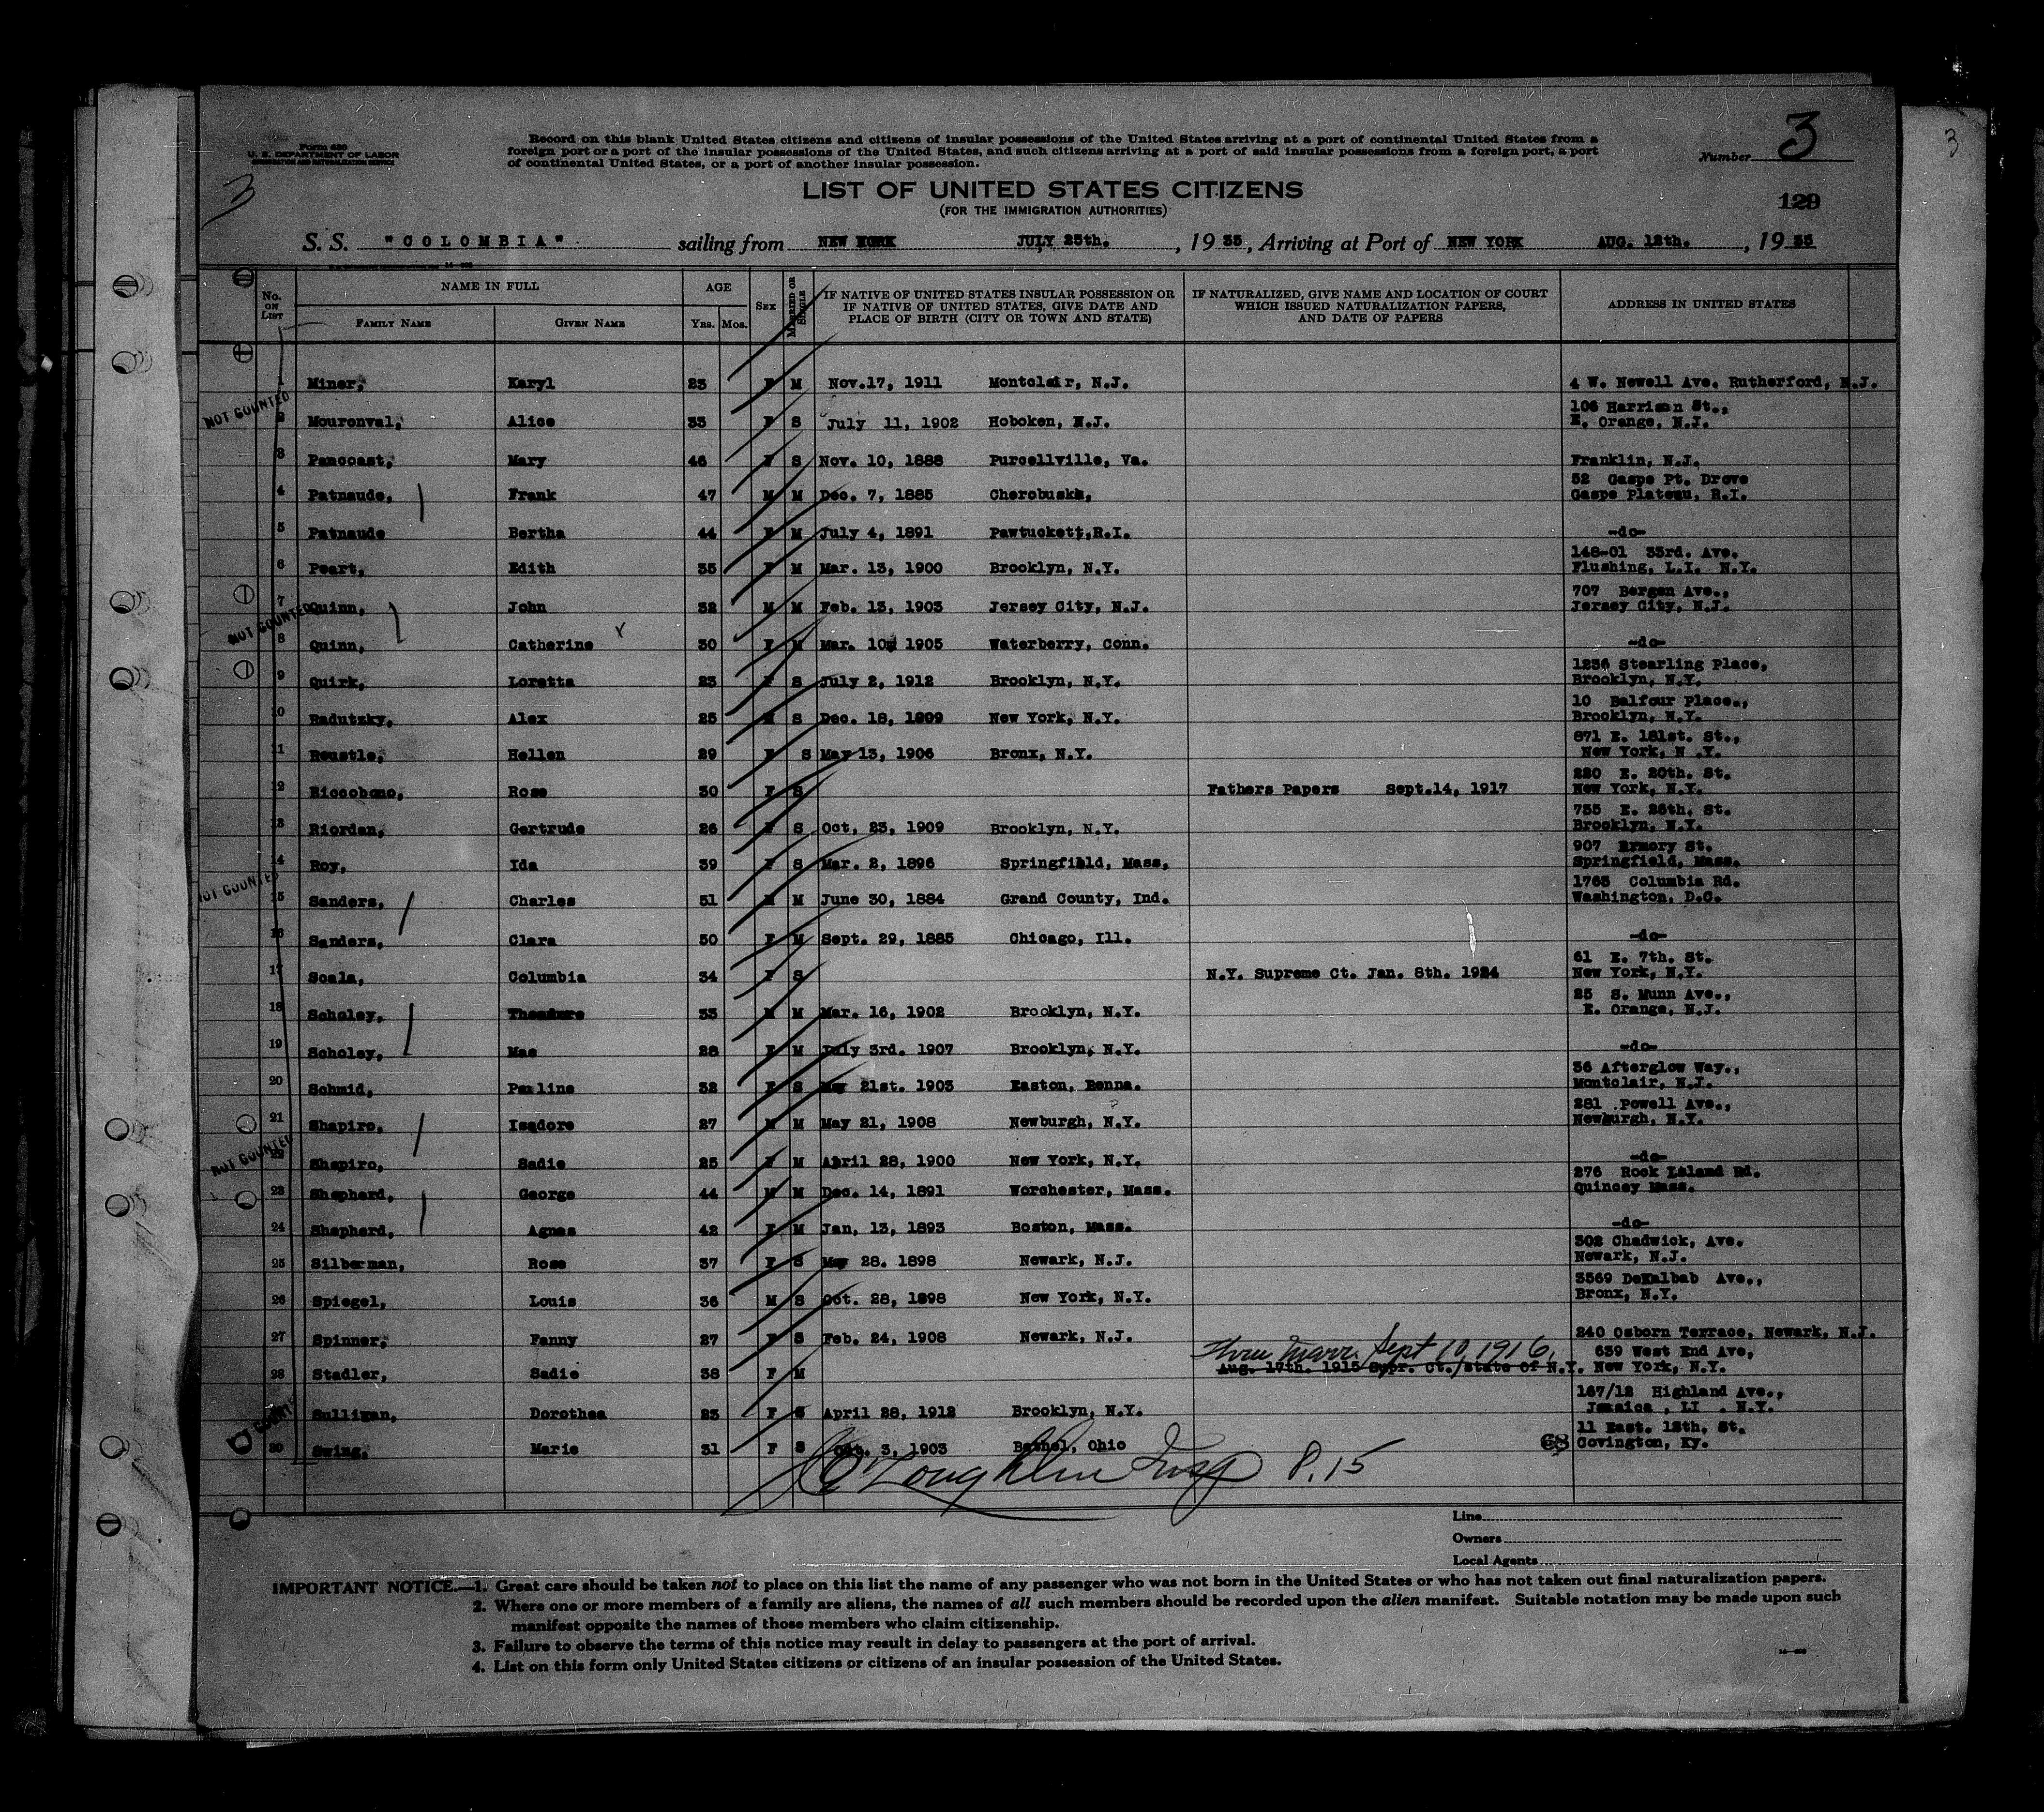 Form 630
U. S. DEPARTMENT OF LABOR
IMMIGRATION AND NATURALIZATION SERVICE
Record on this blank United States citizens and citizens of insular possessions of the United States arriving at a port of continental United States from a
foreign port or a port of the insular possessions of the United States, and such citizens arriving at a port of said insular possessions from a foreign port, a port
of continental United States, or a port of another insular possession.
Number 3
3
3
LIST OF UNITED STATES CITIZENS
(FOR THE IMMIGRATION AUTHORITIES)
129
S. S. "COLOMBIA" sailing from NEW YORK JULY 25th., 19 35, Arriving at Port of NEW YORK AUG. 12th., 19 35
No. ON LIST NAME IN FULL AGE SEX MARRIED OR SINGLE IF NATIVE OF UNITED STATES INSULAR POSSESSION OR IF NATIVE OF UNITED STATES, GIVE DATE AND PLACE OF BIRTH (CITY OR TOWN AND STATE) IF NATURALIZED, GIVE NAME AND LOCATION OF COURT WHICH ISSUED NATURALIZATION PAPERS, AND DATE OF PAPERS ADDRESS IN UNITED STATES
FAMILY NAME GIVEN NAME YRS. MOS.
1 Miner, Karyl 23 F M Nov.17, 1911 Montclair, N.J. 4 W. Newell Ave. Rutherford, N.J.
NOT COUNTED
106 Harrison St.,
2 Mouronval, Alice 33 F S July 11, 1902 Hoboken, N.J. E. Orange, N.J.
3 Pancoast, Mary 46 F S Nov. 10, 1888 Purcellville, Va. Franklin, N.J.
52 Gaspe Pt. Drove
4 Patnaude, Frank 47 M M Dec. 7, 1885 Cherobusk, Gaspe Plateau, R.I.
5 Patnaude Bertha 44 F M July 4, 1891 Pawtuckett,R.I. -do-
148-01 33rd. Ave.
6 Peart, Edith 35 F M Mar. 13, 1900 Brooklyn, N.Y. Flushing, L.I. N.Y.
707 Bergen Ave.,
7 Quinn, John 32 M M Feb. 13, 1903 Jersey City, N.J. Jersey City, N.J.
NOT COUNTED
8 Quinn, Catherine x 30 F M Mar. 10, 1905 Waterberry, Conn. -do-
1236 Stearling Place,
9 Quirk, Loretta 23 F S July 2, 1912 Brooklyn, N.Y. Brooklyn, N.Y.
10 Balfour Place.,
10 Radutzky, Alex 25 M S Dec. 18, 1909 New York, N.Y. Brooklyn, N.Y.
871 E. 181st. St.,
11 Reustle, Hellen 29 F S May 13, 1906 Bronx, N.Y. New York, N .Y.
220 E. 20th. St.
12 Riccobono, Rose 30 F S Fathers Papers Sept.14, 1917 New York, N.Y.
755 E. 26th. St.
13 Riordan, Gertrude 26 F S Oct. 23, 1909 Brooklyn, N.Y. Brooklyn, N.Y.
907 Armory St.
14 Roy, Ida 39 F S Mar. 2, 1896 Springfield, Mass, Springfield, Mass.
NOT COUNTED
1763 Columbia Rd.
15 Sanders, Charles 51 M M June 30, 1884 Grand County, Ind. Washington, D.C.
16 Sanders, Clara 50 F M Sept. 29, 1885 Chicago, Ill. -do-
61 E. 7th. St.
17 Scala, Columbia 34 F S N.Y. Supreme Ct. Jan. 8th. 1924 New York, N.Y.
25 S. Munn Ave.,
18 Scholey, Theodore 33 M M Mar. 16, 1902 Brooklyn, N.Y. E. Orange, N.J.
19 Scholey, Mae 28 F M July 3rd. 1907 Brooklyn, N.Y. -do-
36 Afterglow Way.,
20 Schmid, Pauline 32 F S May 21st. 1903 Easton, Benna. Montclair, N.J.
281 Powell Ave.,
21 Shapiro, Isadore 27 M M May 21, 1908 Newburgh, N.Y. Newburgh, N.Y.
NOT COUNTED
22 Shapiro, Sadie 25 F M April 28, 1900 New York, N.Y. -do-
276 Rock Island Rd.
23 Shepherd, George 44 M M Dec. 14, 1891 Worchester, Mass. Quincey Mass.
24 Shepherd, Agnes 42 F M Jan, 13, 1893 Boston, Mass. -do-
302 Chadwick, Ave.
25 Silberman, Rose 37 F S May 28. 1898 Newark, N.J. Newark, N.J.
3569 DeKalbab Ave.,
26 Spiegel, Louis 36 M S Oct. 28, 1898 New York, N.Y. Bronx, N.Y.
27 Spinner, Fanny 27 F S Feb. 24, 1908 Newark, N.J. 240 Osborn Terrace, Newark, N.J.
Thru Marr. Sept 10, 1916, 639 West End Ave,
28 Stadler, Sadie 38 F M Aug. 17th. 1915 Supr. Ct./State of N.Y. New York, N.Y.
167/12 Highland Ave.,
Sulligan, Dorothea 23 F S April 28, 1912 Brooklyn, N.Y. Jamaica , LI . N.Y.
11 East. 12th, St.
30 Swing, Marie 31 F S Oct. 3, 1903 Bethel, Ohio 68 Covington, Ky.
O'Loughlin Insp P.15
Line
Owners
Local Agents
IMPORTANT NOTICE.—1. Great care should be taken not to place on this list the name of any passenger who was not born in the United States or who has not taken out final naturalization papers.
2. Where one or more members of a family are aliens, the names of all such members should be recorded upon the alien manifest. Suitable notation may be made upon such
manifest opposite the names of those members who claim citizenship.
3. Failure to observe the terms of this notice may result in delay to passengers at the port of arrival.
4. List on this form only United States citizens or citizens of an insular possession of the United States.